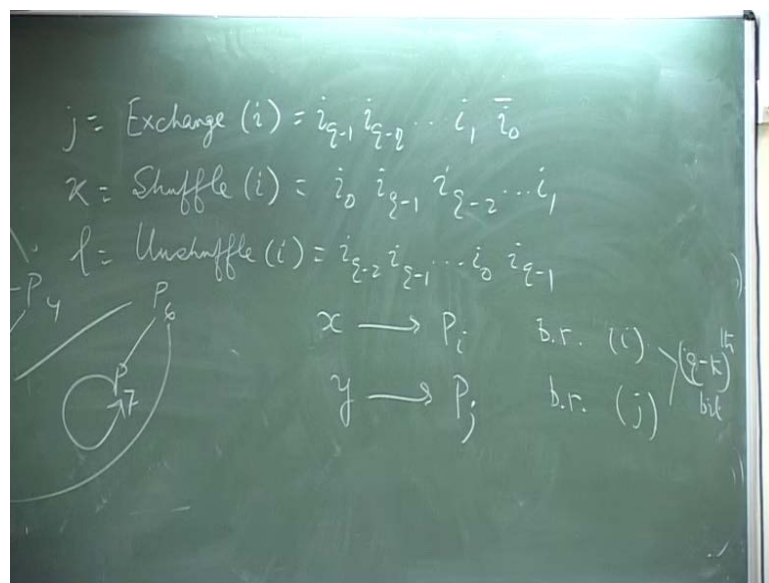 j = Exchange (i) = i_{q-1} i_{q-2} ... i_1 \bar{i}_0
k = Shuffle (i) = i_0 i_{q-1} i_{q-2} ... i_1
l = Unshuffle (i) = i_{q-2} i_{q-1} ... i_0 i_{q-1}
P_4
P_6
P_7
x → P_i b.r. (i)
y → P_j b.r. (j)
(q-k)^{th}
bit